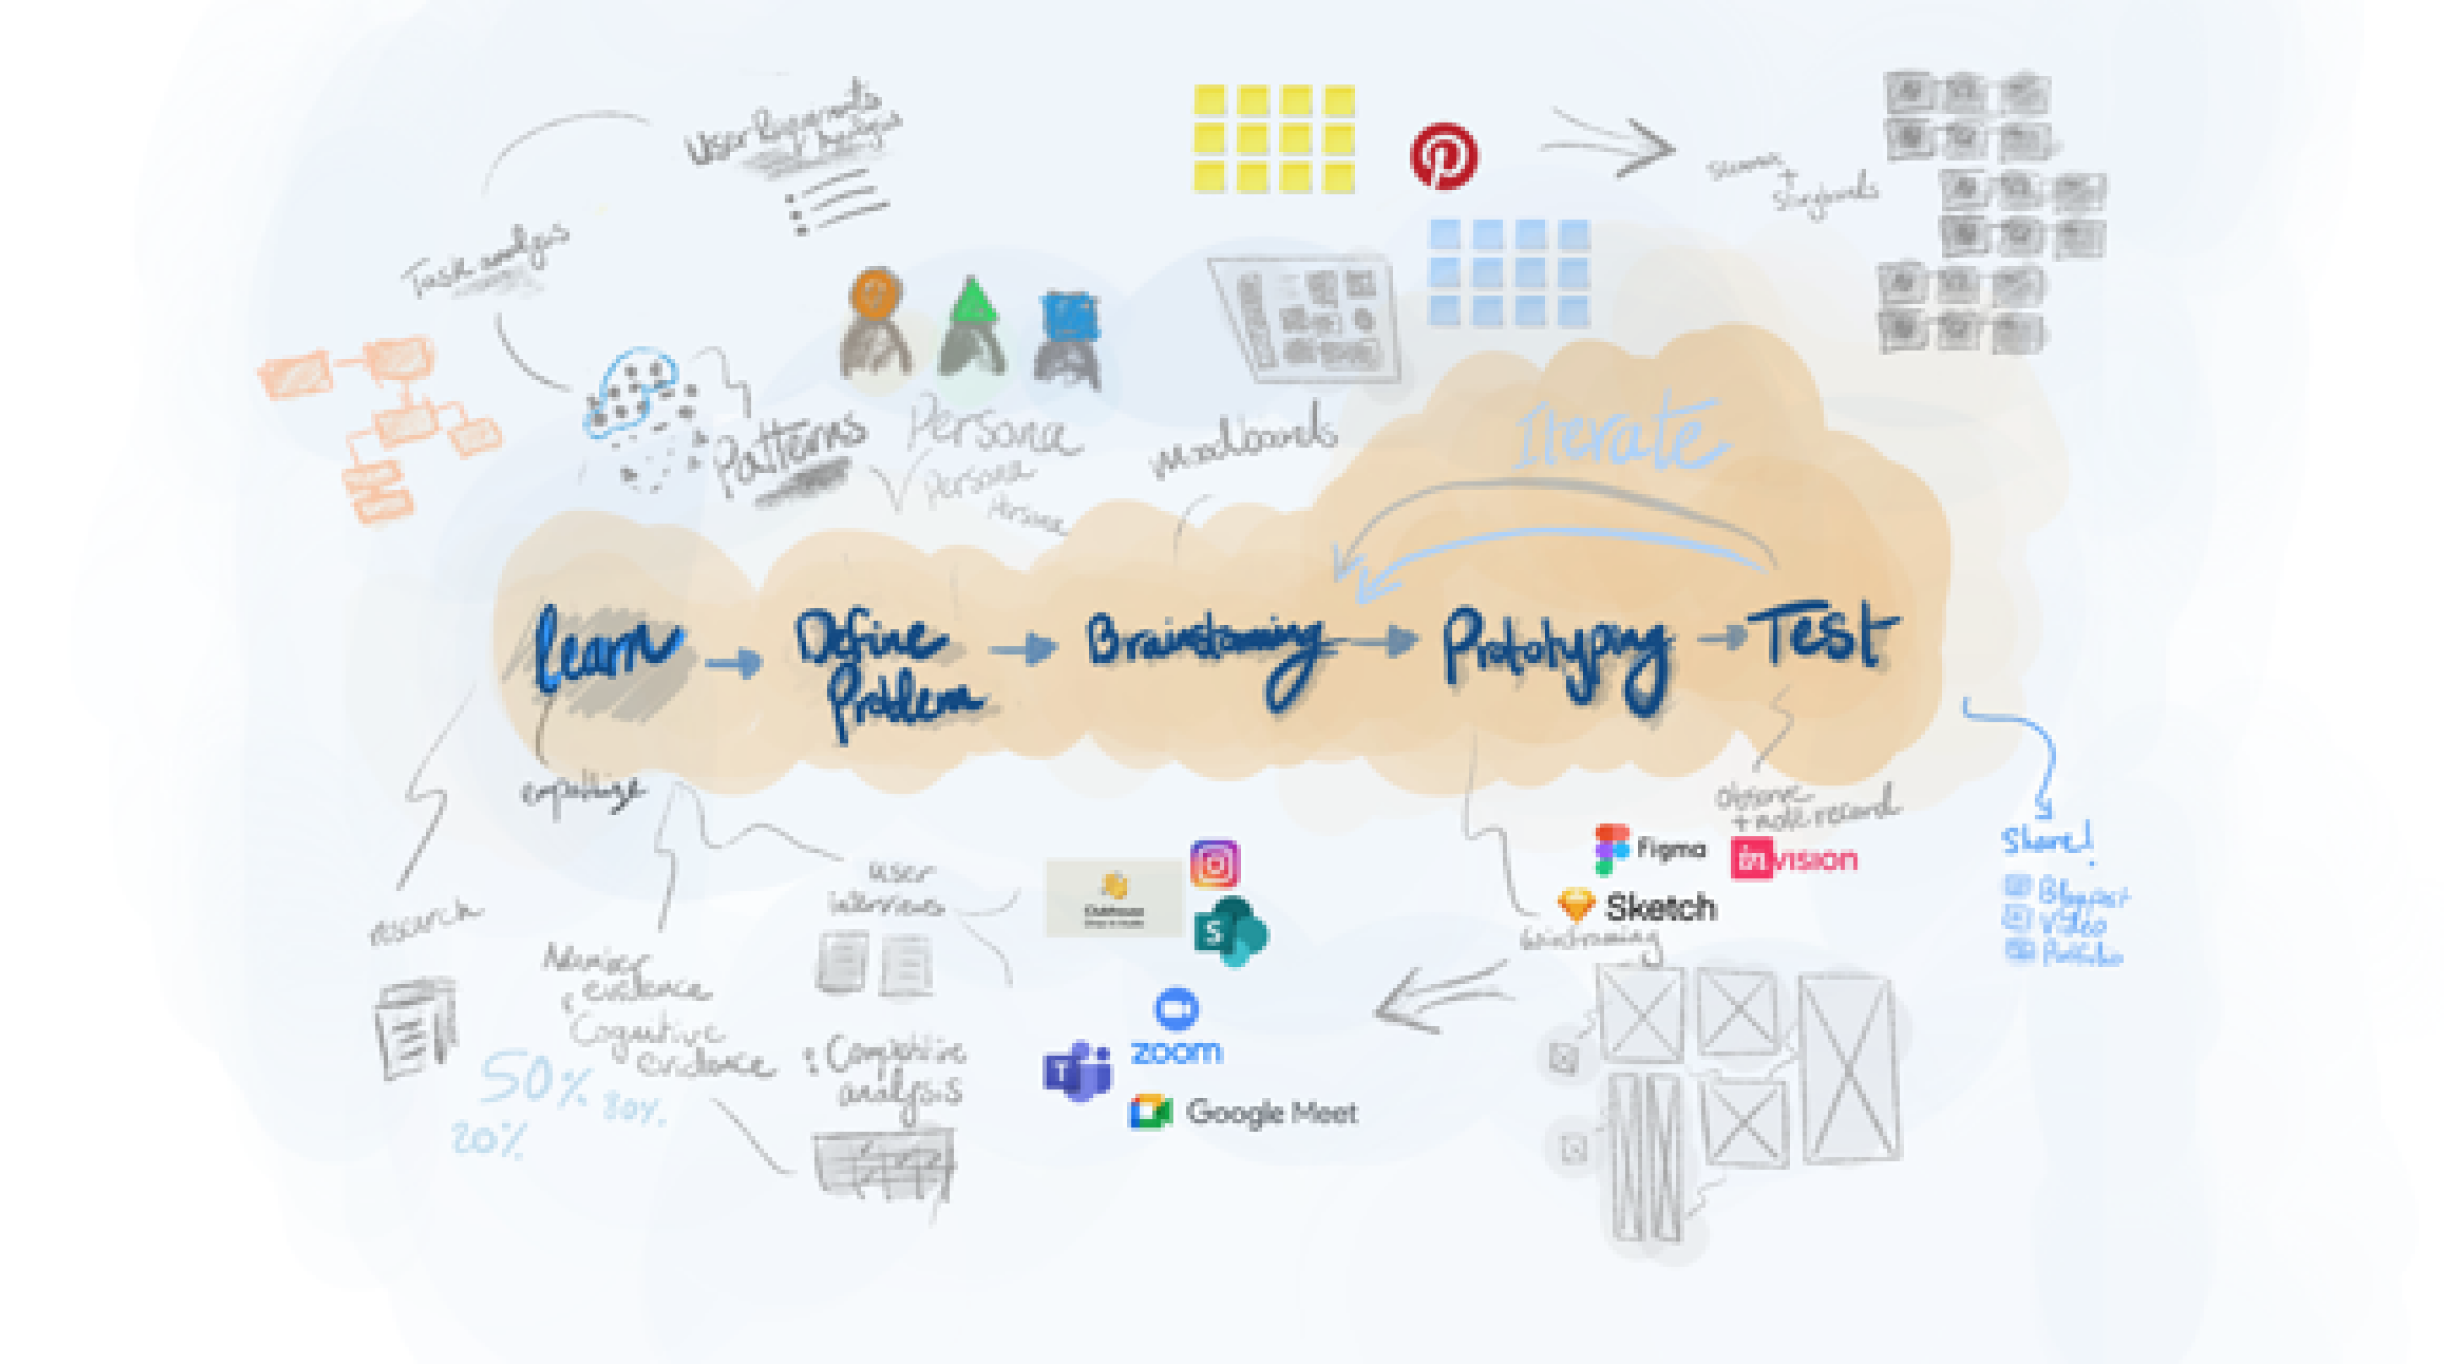 User Requirements
Analysis
Task analysis
Patterns
Persona
Persona
Persona
moodboards
+
Storyboards
Iterate
learn
Define
Problem
Brainstorming
Prototyping
Test
empathize
research
evidence
Cognitive
evidence
50%
80%
20%
user
interviews
Competitive
analysis
Clubhouse
S
T
zoom
Google Meet
Figma
invision
Sketch
wireframing
observe
+ note record
Share!
Blogpost
Video
Portfolio